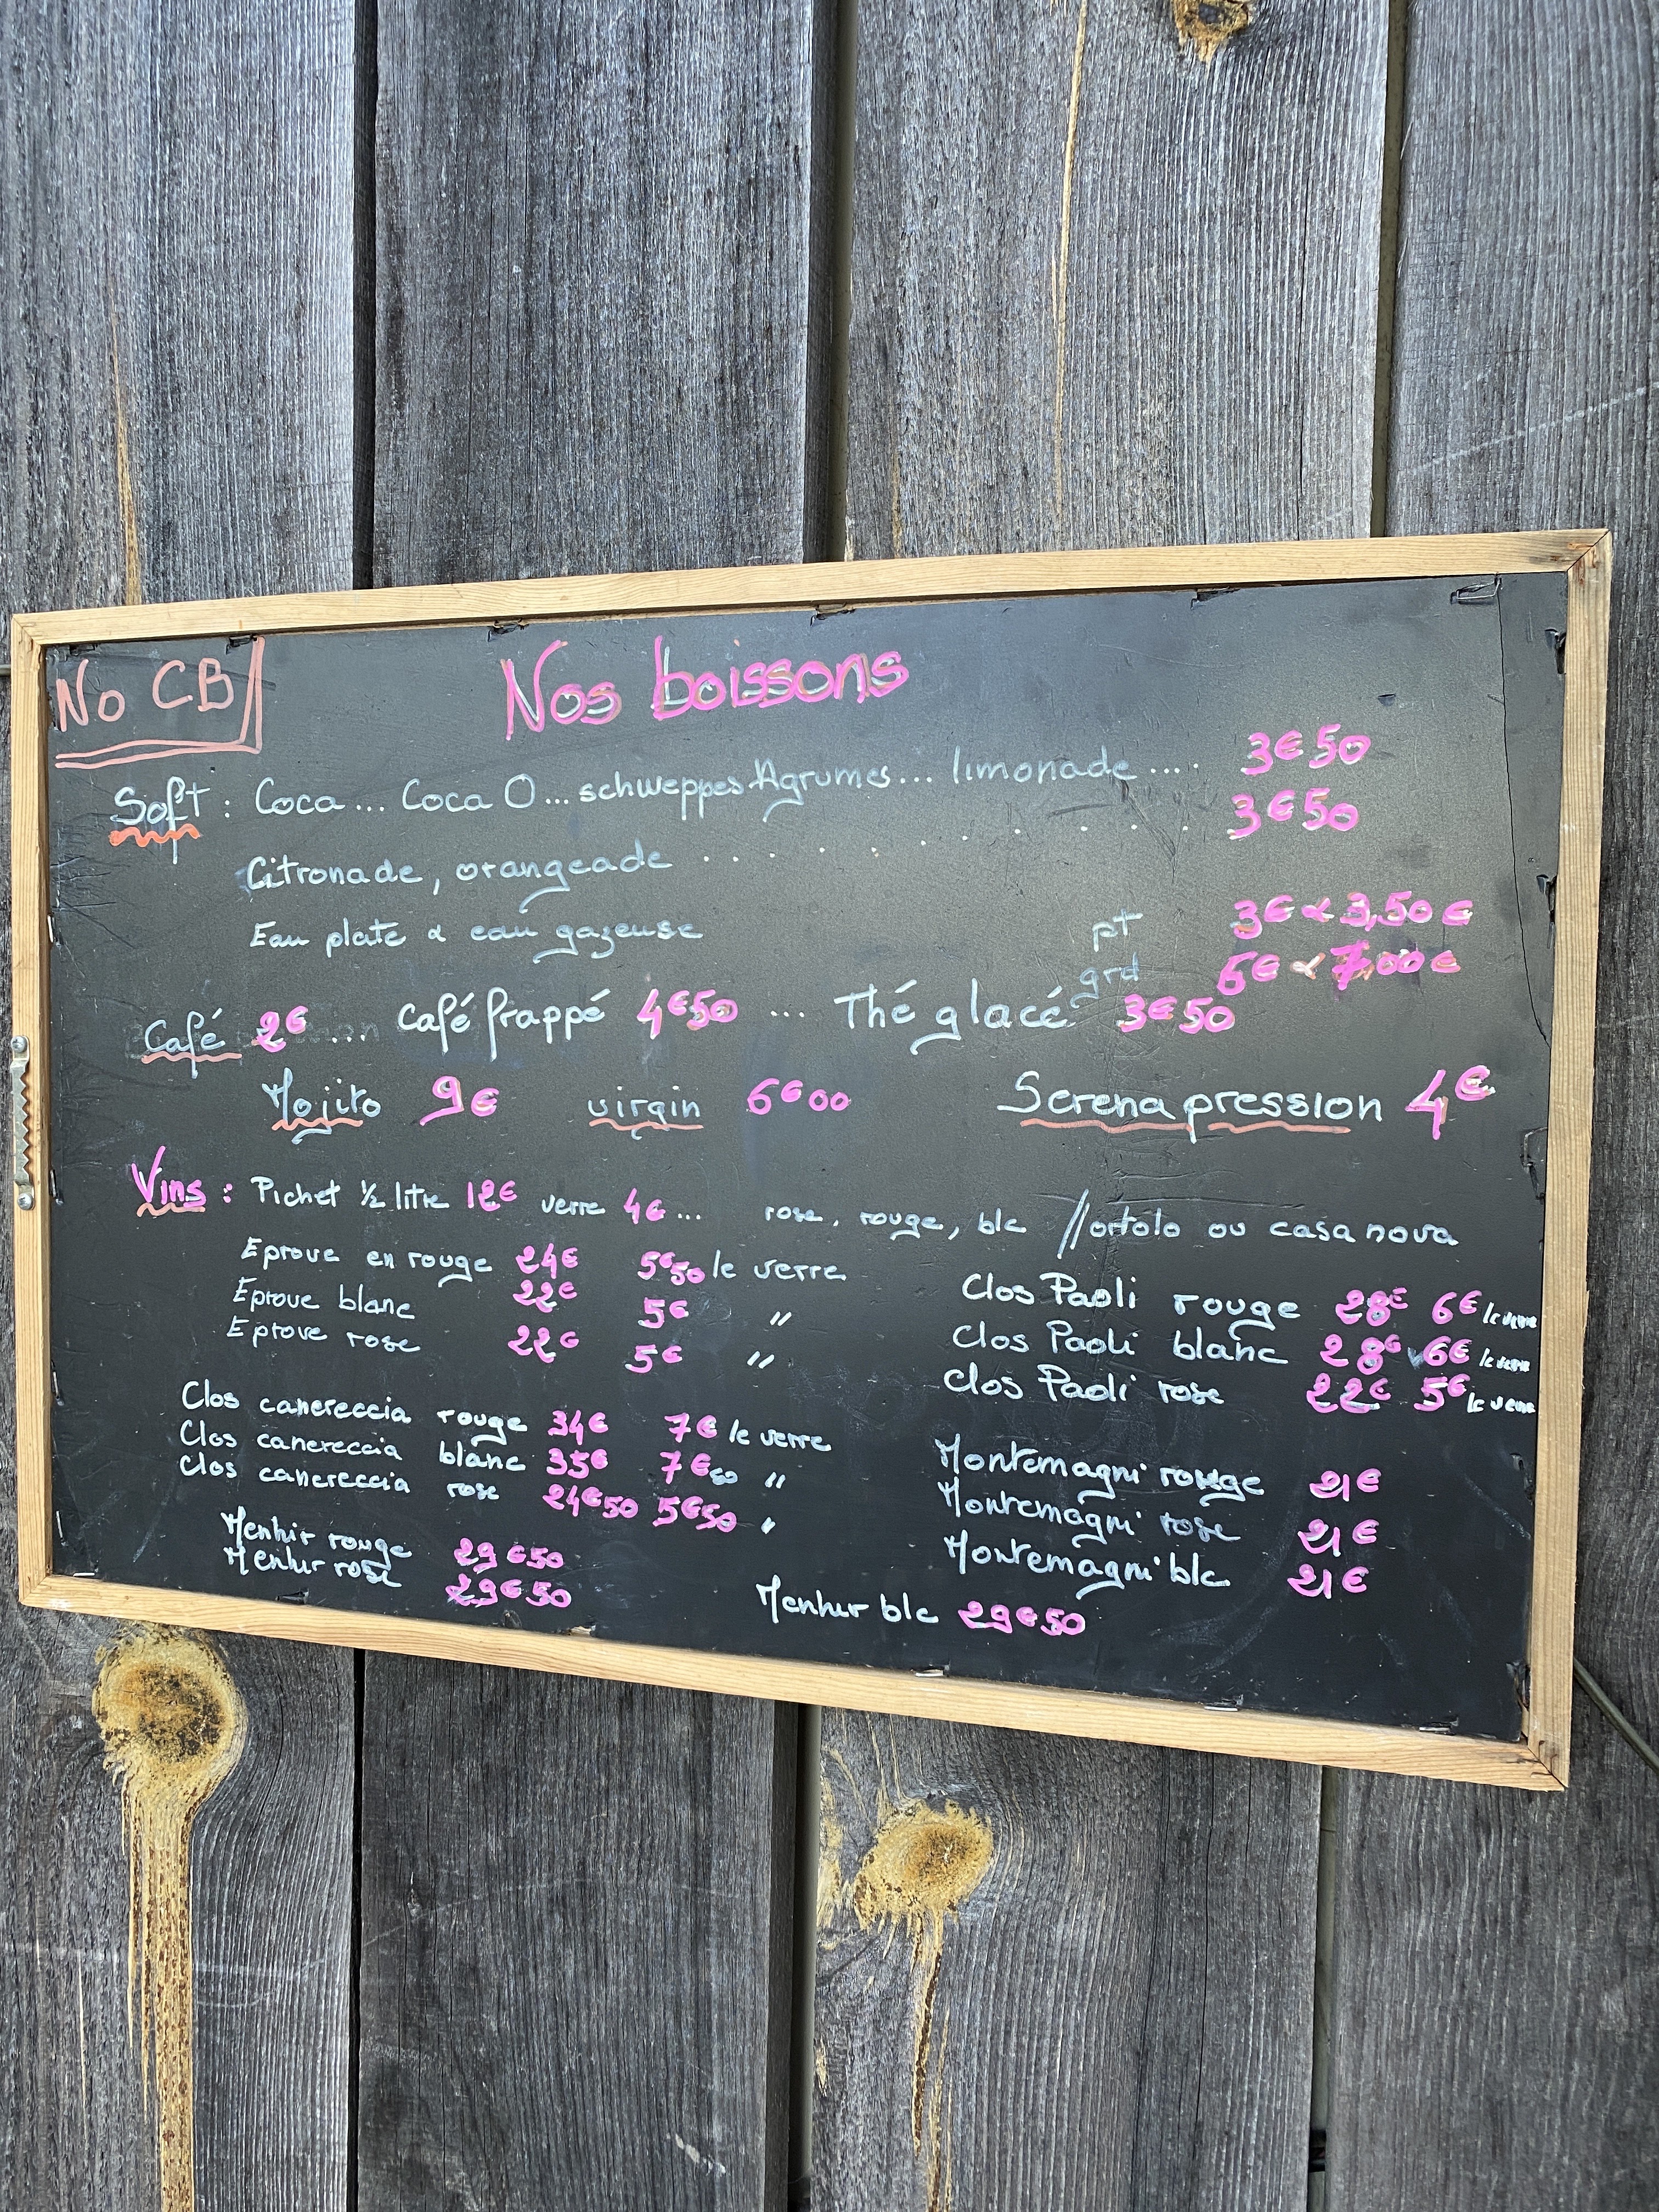 No CB
Nos boissons
Soft : Coca ... Coca O ... schweppes Agrumes ... limonade .... 3€50
Citronade, orangeade . . . . . . . . . 3€50
Eau plate & eau gazeuse pt 3€ & 3,50€
grd 6€ & 7,00€
Café 2€ ... café frappé 4€50 ... Thé glacé 3€50
Mojito 9€ virgin 6€00 Serena pression 4€
Vins : Pichet ½ litre 12€ verre 4€ ... rose, rouge, blc // ortolo ou casanova
Eprove en rouge 24€ 5€50 le verre
Eprove blanc 22€ 5€ "
Eprove rose 22€ 5€ "
Clos Paoli rouge 28€ 6€ le verre
Clos Paoli blanc 28€ 6€ le verre
Clos Paoli rose 22€ 5€ le verre
Clos canereccia rouge 34€ 7€ le verre
Clos canereccia blanc 35€ 7€ "
Clos canereccia rose 24€50 5€50 "
Montemagni rouge 21€
Montemagni rose 21€
Montemagni blc 21€
Menhir rouge 29€50
Menhir rose 29€50
Menhir blc 29€50